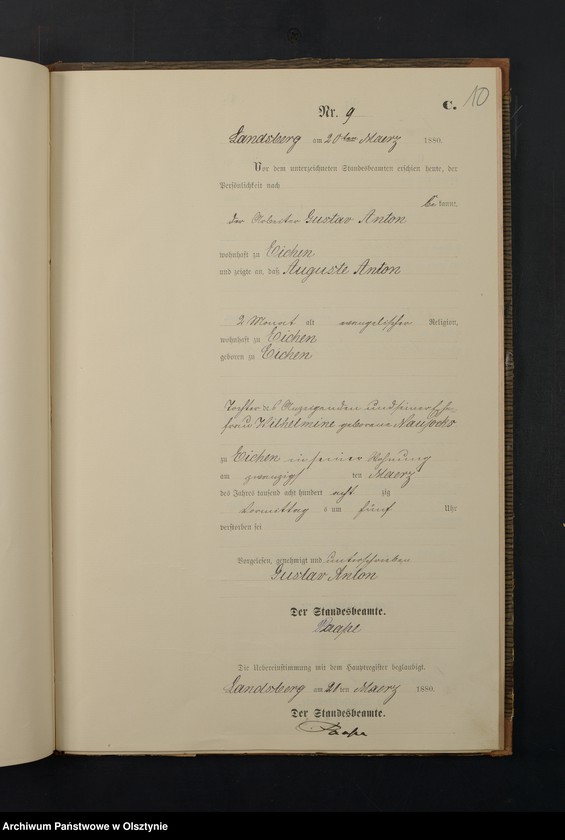 C. 10
Nr. 9
Landsberg am 20ten Maerz 1880.
Vor dem unterzeichneten Standesbeamten erschien heute, der
Persönlichkeit nach
be kannt,
der Arbeiter Gustav Anton
wohnhaft zu Eichen
und zeigte an, daß Auguste Anton
2 Monat alt evangelischer Religion,
wohnhaft zu Eichen
geboren zu Eichen
Tochter des Anzeigenden und seiner Ehe
frau Wilhelmine geborene
zu Eichen in seiner Wohnung
am zwanzigs ten Maerz
des Jahres tausend acht hundert acht zig
Vormittags um fünf Uhr
verstorben sei
Vorgelesen, genehmigt und unterschrieben
Gustav Anton
Der Standesbeamte.
Paape
Die Uebereinstimmung mit dem Hauptregister beglaubigt.
Landsberg am 21 ten Maerz 1880.
Der Standesbeamte.
Paape
Archiwum Państwowe w Olsztynie